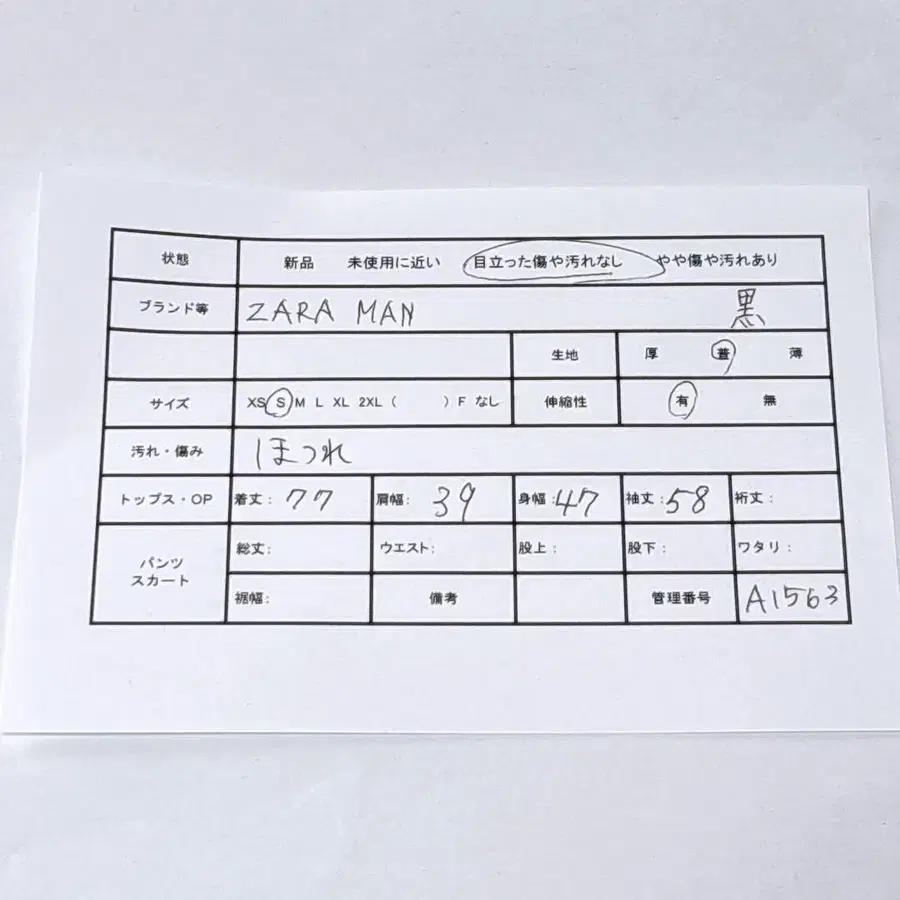 状態 新品 未使用に近い 目立った傷や汚れなし やや傷や汚れあり
ブランド等 ZARA MAN 黒
生地 厚 普 薄
サイズ XS S M L XL 2XL ( ) F なし 伸縮性 有 無
汚れ・傷み ほつれ
トップス・OP 着丈: 77 肩幅: 39 身幅: 47 袖丈: 58 裄丈:
パンツ
スカート
総丈: ウエスト: 股上: 股下: ワタリ:
裾幅: 備考 管理番号 A1563